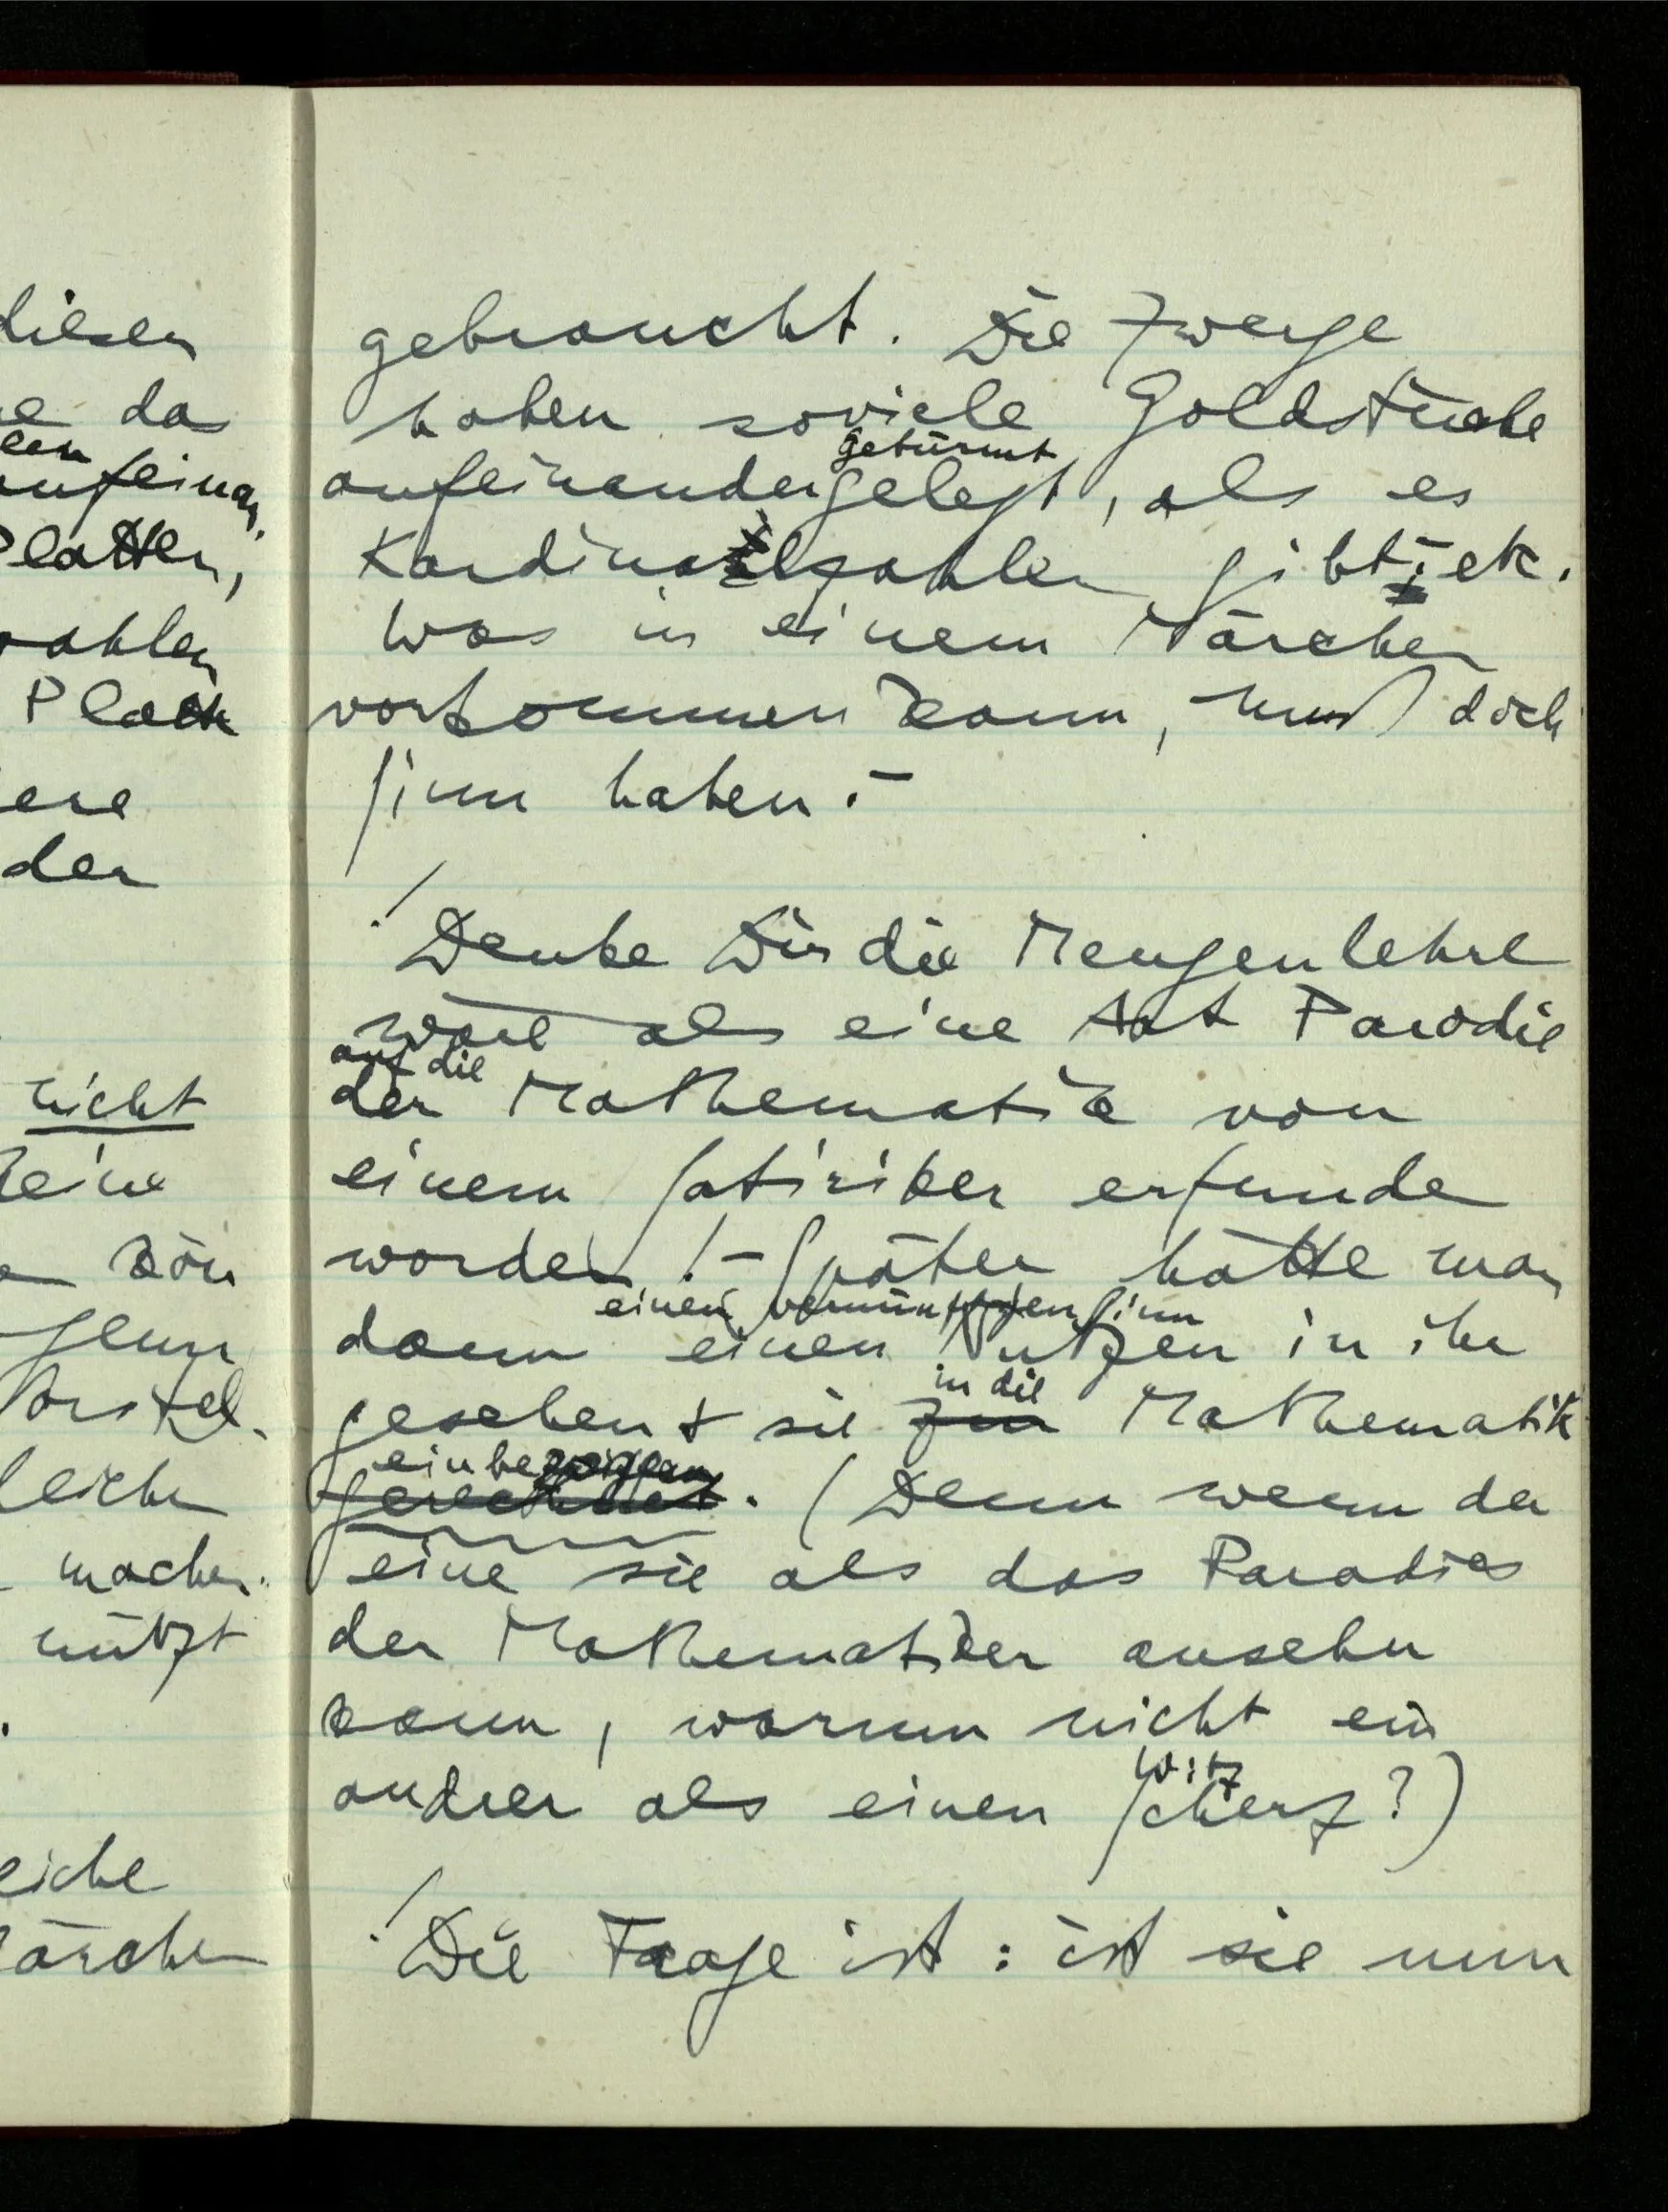 diesen
da
len
aufeinan-
Platten,
zahlen
Platte
ere
der
nicht
keine
kön
genn
Vorstel-
leichen
machen.
nützt
eiche
ärchen
gebraucht. Die Zwerge
haben soviele Goldstücke
getürmt
aufeinandergelegt, als es
Kardinalzahlen gibt – etc.
Was in einem Märchen
vorkommen kann, muß doch
Sinn haben. –
/ Denke Dir die Mengenlehre
wäre als eine Art Parodie
auf die
der Mathematik von
einem Satiriker erfunden
worden. – Später hätte man
einen vernünftigen Sinn
dann einen Nutzen in ihr
in die
gesehen & sie zur Mathematik
einbezogen
gerechnet. (Denn wenn der
eine sie als das Paradies
der Mathematiker ansehn
kann, warum nicht ein
Witz
andrer als einen Scherz?)
/ Die Frage ist: ist sie nun